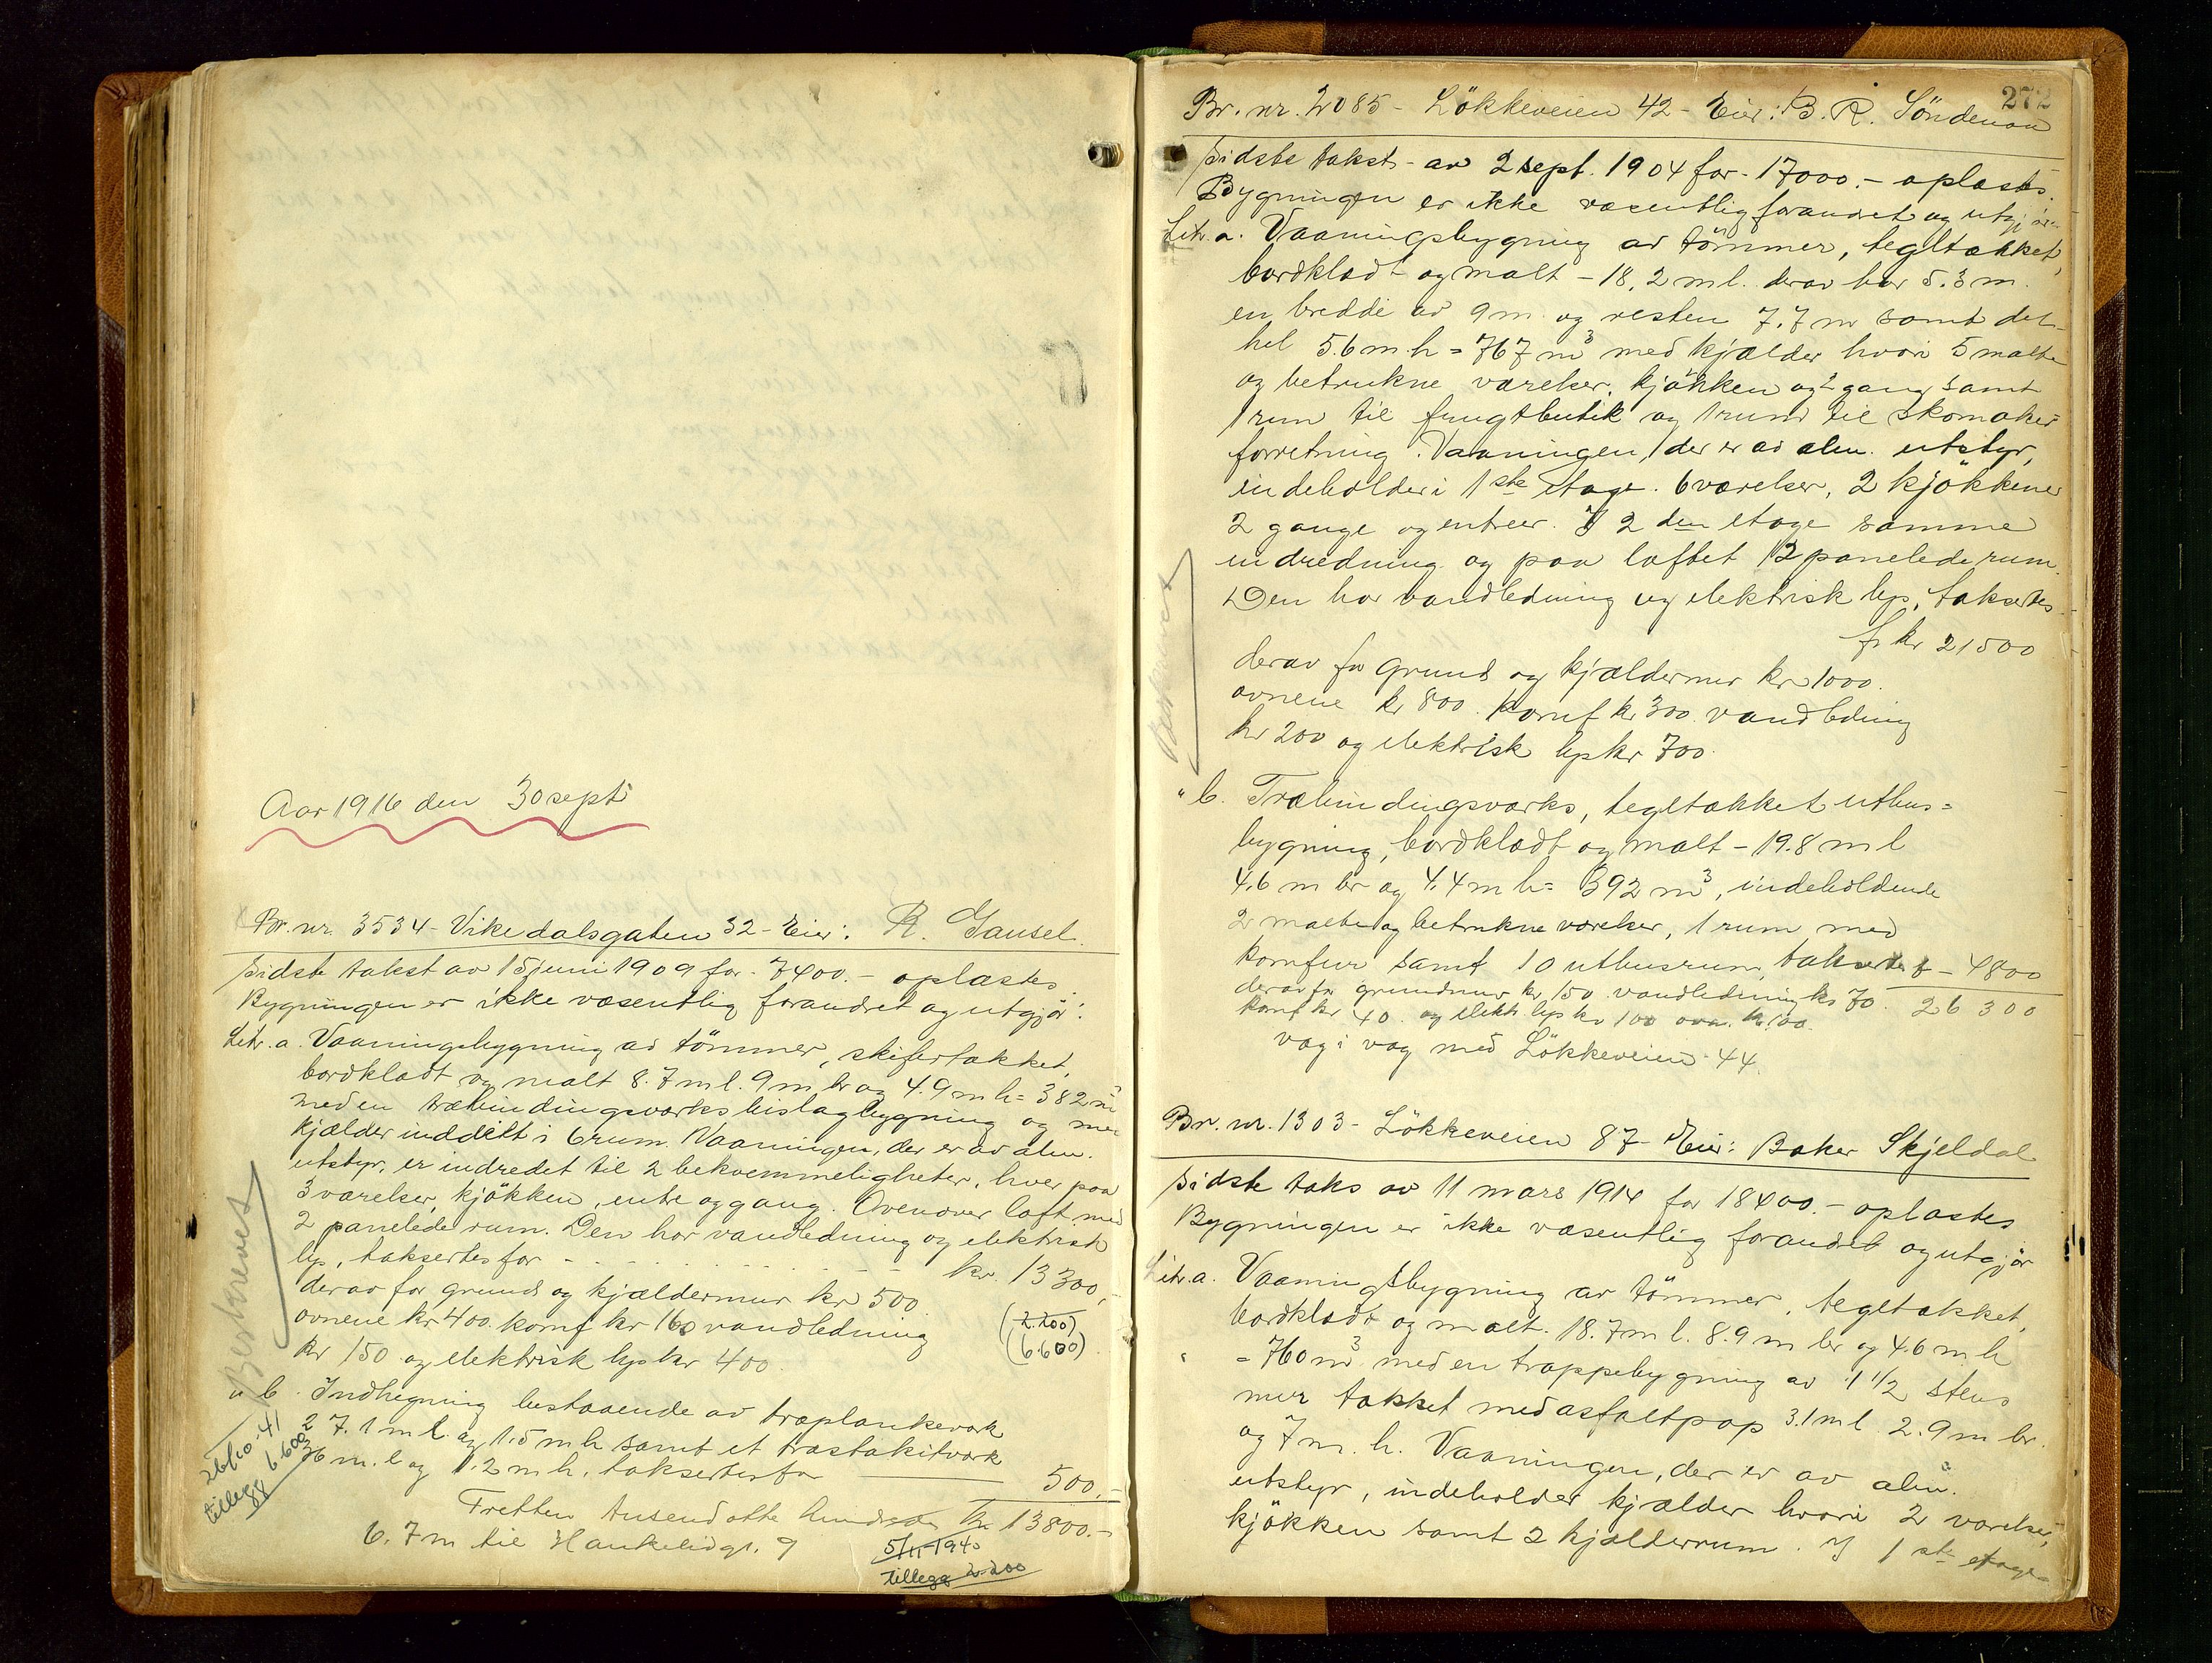 Aar 1916 den 30 sept
Br. nr. 3534 - Vikedalsgaten 32 - Eier: R. Gausel.
Sidste takst av 15 juni 1909 for - 7400.- oplæstes.
Bygningen er ikke væsentlig forandret og utgjør:
Litr. a. Vaaningsbygning av tømmer, skifertækket,
bordklædt og malt 8.7 m l. 9 m br og 4.9 m h = 382 m³
med en træbindingsverks bislagbygning og med
kjælder inddelt i 6 rum. Vaaningen, der er av alm.
utstyr, er indredet til 2 bekvemmeligheter, hver paa
3 værelser, kjøkken, entre og gang. Ovenover loft med
2 panelede rum. Den har vandledning og elektrisk
lys, taksertes for - - - - - - kr. 13300,-
derav for grund og kjældermur kr 500.
ovnene kr 400. komf kr 160 vandledning
(2.200)
(6.600).
kr 150 og elektrisk lys kr 400.
Bestorevet
" b. Indhegning bestaaende av træplankeverk
27.1 m l. og 1.5 m h samt et træstakitverk
36 m. l og 1.2 m h, taksertes for 500.-
26/10-41
tillegg 6.600
Tretten tusend otte hundrede Kr 13800.-
6.7 m til Haukeligt. 9
5/11-1940
tillegg 2.200
272
Br. nr. 2085 - Løkkeveien 42 - Eier: B. R. Søndenaa
Sidste takst - av 2 sept. 1904 for - 17000.- oplæstes.
Bygningen er ikke væsentlig forandret og utgjør:
Litr. a. Vaaningsbygning av tømmer, tegltækket,
bordklædt og malt - 18.2 m l. derav har 5.3 m.
en bredde av 9 m og resten 7.7 m samt det
hel 5.6 m h = 767 m³ med kjælder hvori 5 malte
og betrukne værelser, kjøkken og 2 gang samt
1 rum til frugtbutik og 1 rum til skomaker=
forretning. Vaaningen, der er av alm. utstyr,
indeholder i 1ste etage. 6 værelser, 2 kjøkkener
2 gange og entreer. I 2den etage samme
indredning og paa loftet 12 panelede rum.
Den har vandledning og elektrisk lys, taksertes
fr kr 21500
derav for grund og kjældermur kr 1000.
ovnene kr 800. komf kr 300. vandledning
kr 200 og elektrisk lys kr 700.
" b. Træbindingsverks, tegltækket uthus=
bygning, bordklædt og malt - 19.8 m l
4.6 m br og 4.4 m h = 392 m³, indeholdende
2 malte og betrukne værelser, 1 rum med
komfur samt 10 uthusrum, taksertes f - 4800
derav for grundmur kr 150. vandledning kr 70. 26 300
komf kr 40. og elektr. lys kr 100 ovn. kr 100.
væg i væg med Løkkeveien 44.
Br. nr. 1303 - Løkkeveien 87 - Eier: Baker Skjeldal
Sidste taks av 11 mars 1914 for 18400.- oplæstes
Bygningen er ikke væsentlig forandret og utgjør
Litr. a. Vaaningsbygning av tømmer, tegltækket,
bordklædt og malt. 18.7 m l. 8.9 m br og 4.6 m h
= 760 m³ med en trappebygning av 1 1/2 stens
mur tækket med asfaltpap 3.1 m l 2.9 m br.
og 7 m. h. Vaaningen, der er av alm.
utstyr, indeholder kjælder hvori 2 værelser,
kjøkken samt 2 kjælderrum. I 1ste etage